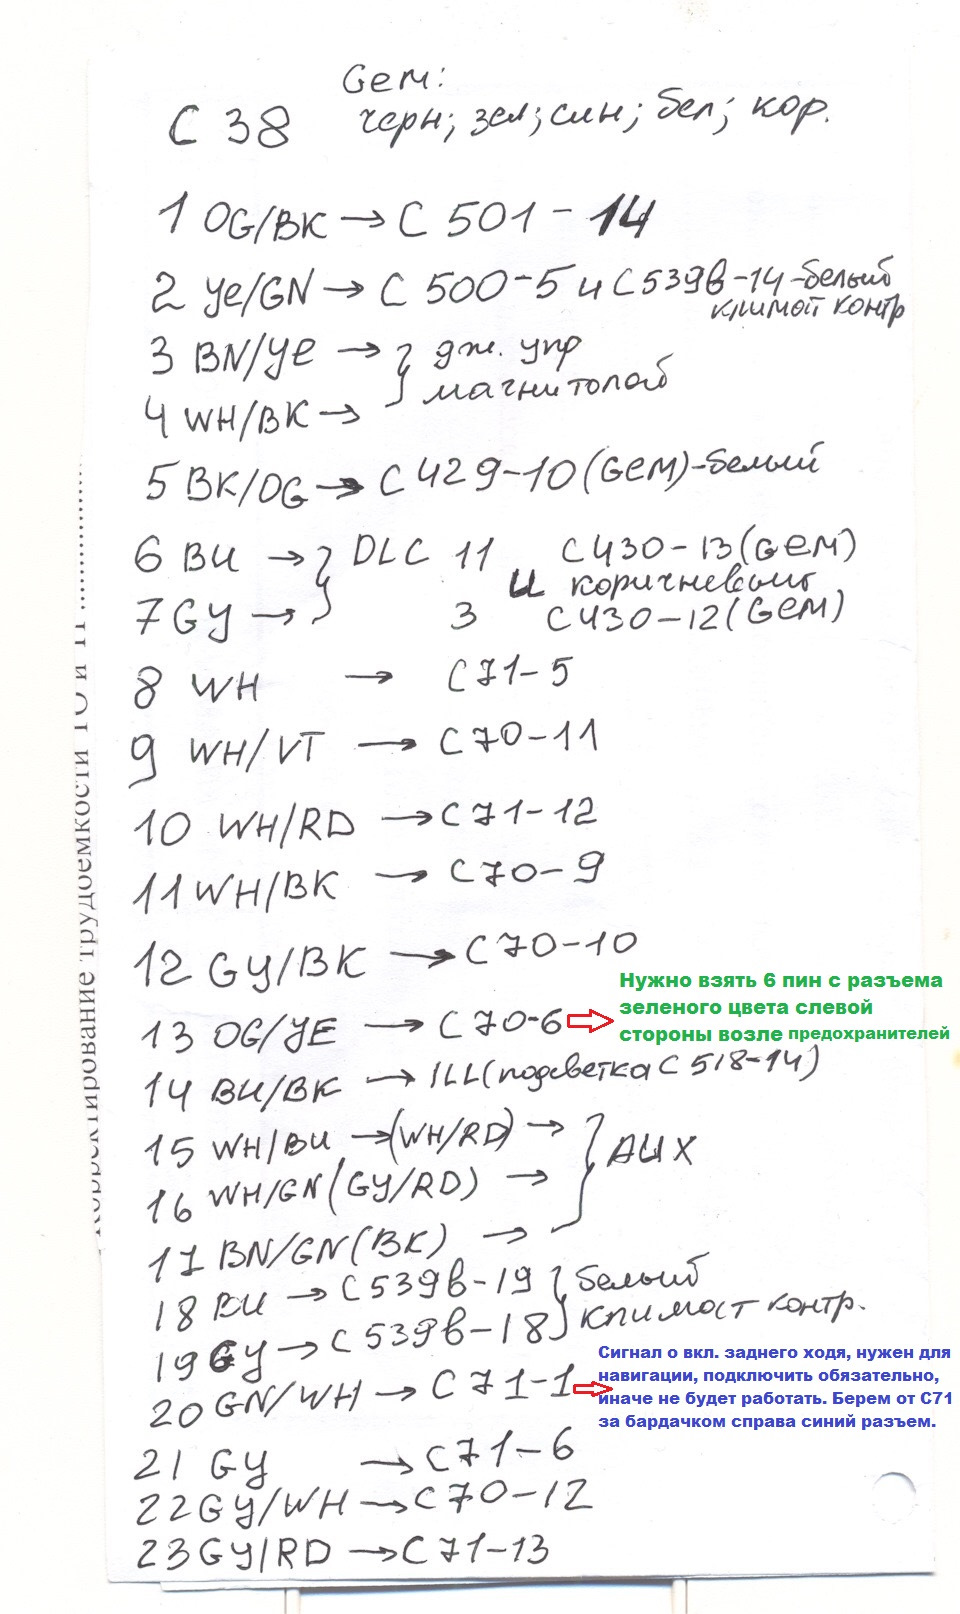 Gem:
C 38 черн; зел; син; бел; кор.
1 OG/BK → C 501 - 14
2 YE/GN → C 500-5 и C539в-14-белый
климат контр
3 BN/YE → } дж. упр
4 WH/BK → магнитолой
5 BK/OG → C 429-10 (GEM)-белый
6 BU → } DLC 11 и C430-13(GEM)
коричневый
7 GY → 3 C430-12(GEM)
8 WH → C71-5
9 WH/VT → C70-11
10 WH/RD → C71-12
11 WH/BK → C70-9
12 GY/BK → C70-10
Нужно взять 6 пин с разъема
зеленого цвета слевой
стороны возле предохранителей
13 OG/YE → C70-6
14 BU/BK → ILL(подсветка C 518-14)
15 WH/BU → (WH/RD) → } AUX
16 WH/GN (GY/RD) →
17 BN/GN (BK) →
18 BU → C539в-19 } белый
19 GY → C 539в-18 климат контр.
20 GN/WH → C 71-1
Сигнал о вкл. заднего ходя, нужен для
навигации, подключить обязательно,
иначе не будет работать. Берем от С71
за бардачком справа синий разъем.
21 GY → C71-6
22 GY/WH → C70-12
23 GY/RD → C71-13
Корректирование трудоемкости ТО и